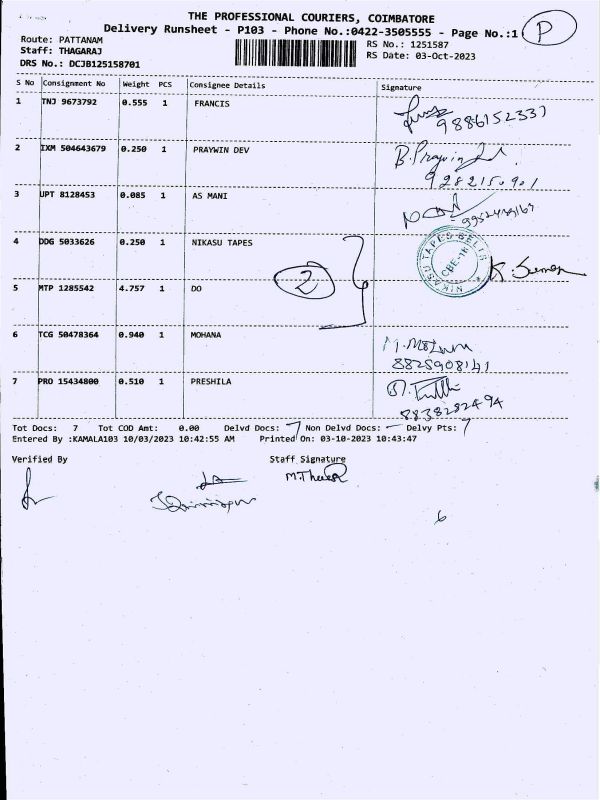 THE PROFESSIONAL COURIERS, COIMBATORE
Delivery Runsheet - P103 - Phone No.:0422-3505555 - Page No.:1 P
Route: PATTANAM RS No.: 1251587
Staff: THAGARAJ RS Date: 03-Oct-2023
DRS No.: DCJB125158701
S No Consignment No Weight PCS Consignee Details Signature
1 TNJ 9673792 0.555 1 FRANCIS
9886152337
2 IXM 504643679 0.250 1 PRAYWIN DEV B.Praywin
9282150901
3 UPT 8128453 0.085 1 AS MANI
4 DDG 5033626 0.250 1 NIKASU TAPES NIKASU TAPES BELTS CBE-16 K. Suman
5 MTP 1285542 4.757 1 DO 2
6 TCG 50478364 0.940 1 MOHANA M.Mohana
8825908141
7 PRO 15434800 0.510 1 PRESHILA
8838282494
Tot Docs: 7 Tot COD Amt: 0.00 Delvd Docs: 7 Non Delvd Docs: — Delvy Pts: 7
Entered By :KAMALA103 10/03/2023 10:42:55 AM Printed On: 03-10-2023 10:43:47
Verified By Staff Signature
6